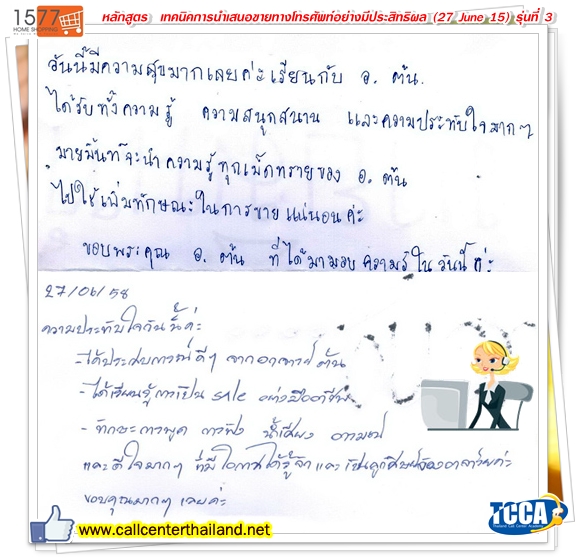 1577
HOME SHOPPING
หลักสูตร เทคนิคการนำเสนอขายทางโทรศัพท์อย่างมีประสิทธิผล (27 June 15) รุ่นที่ 3
วันนี้มีความสุขมากเลยค่ะเรียนกับ อ. ต้น.
ได้รับทั้งความรู้ ความสนุกสนาน และความประทับใจมากๆ
มายมิ้นท์จะนำความรู้ทุกเม็ดทรายของ อ. ต้น
ไปใช้เพิ่มทักษณะในการขายแน่นอนค่ะ
ขอบพระคุณ อ. ต้น ที่ได้มามอบความรู้ในวันนี้ค่ะ
27/06/58
ความประทับใจวันนี้ค่ะ
- ได้ประสบการณ์ดีๆ จากอาจารย์ต้น
- ได้เรียนรู้การเป็น sale อย่างมืออาชีพ
- ทักษะการพูด การฟัง น้ำเสียง อารมณ์
และดีใจมากๆ ที่มีโอกาสได้รู้จักและเป็นลูกศิษย์ของอาจารย์ค่ะ
ขอบคุณมากๆ เลยค่ะ
www.callcenterthailand.net
TCCA
Thailand Call Center Academy